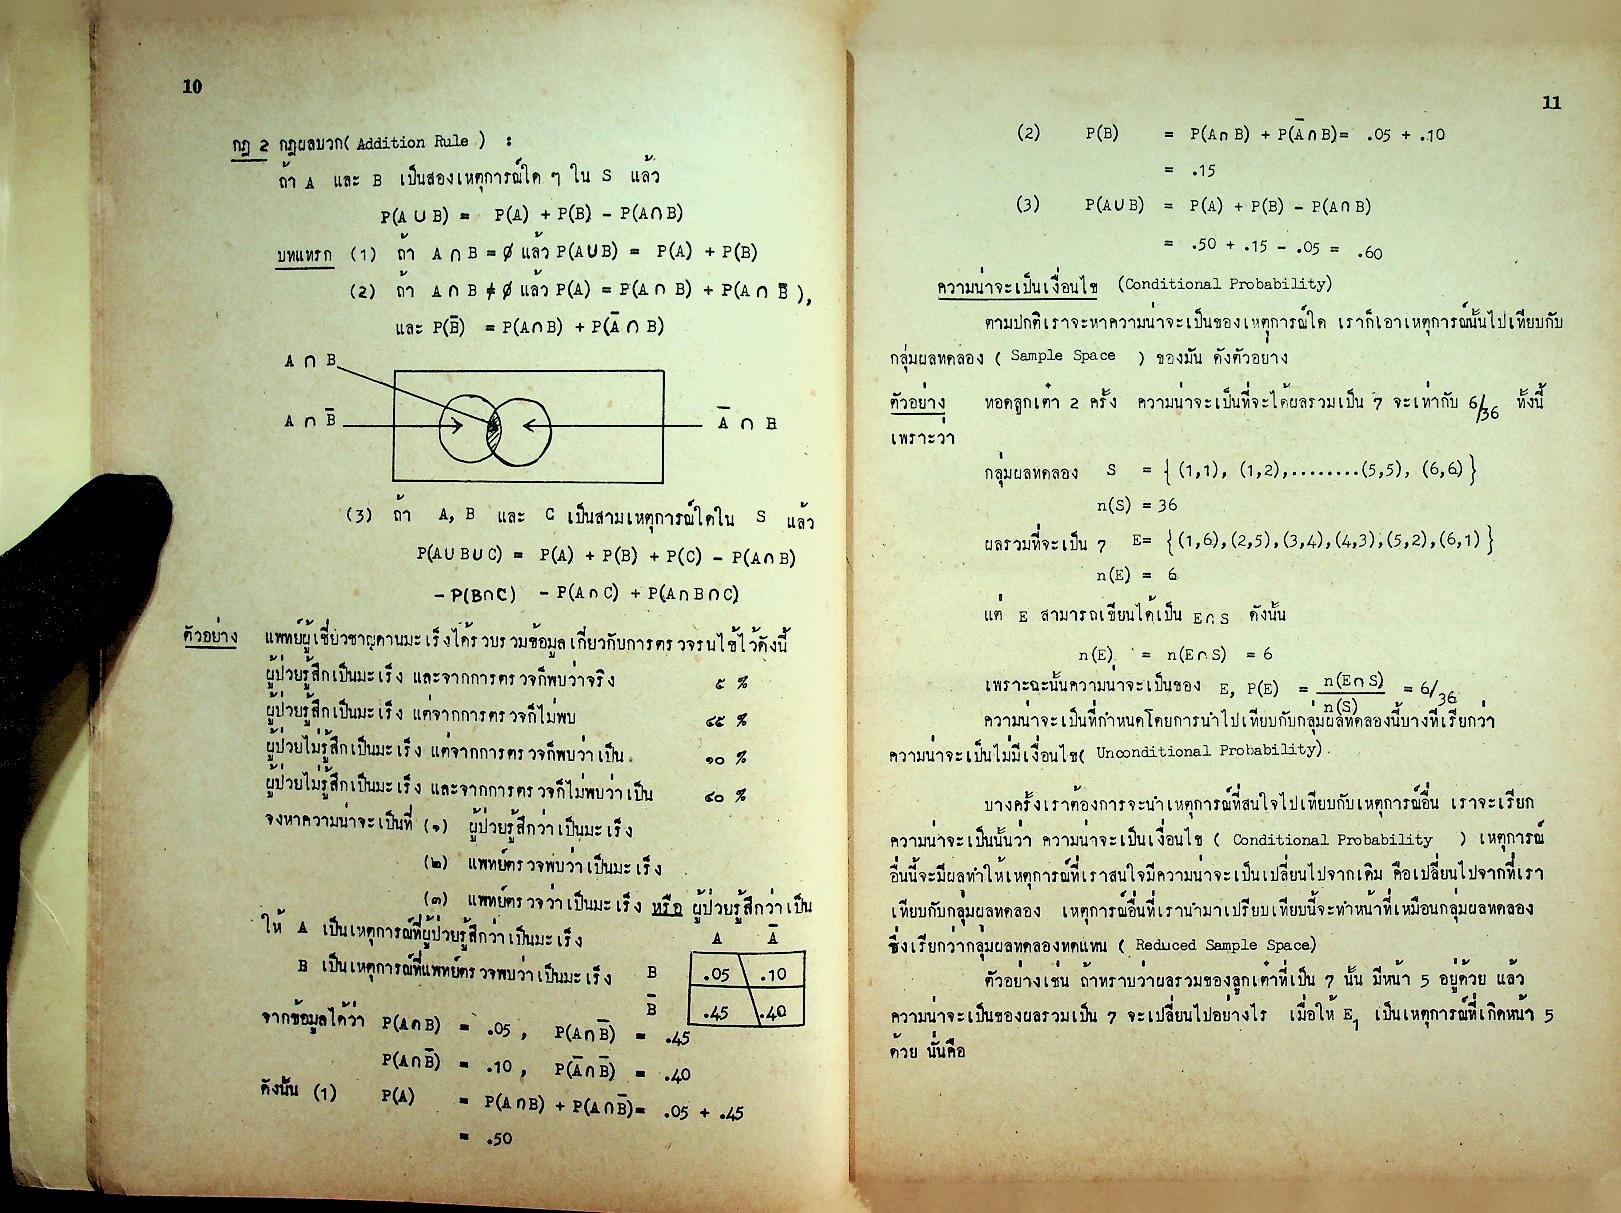 10
กฎ 2 กฎผลบวก( Addition Rule ) :
ถ้า A และ B เป็นสองเหตุการณ์ใด ๆ ใน S แล้ว
P(A ∪ B) = P(A) + P(B) - P(A∩B)
บทแทรก (1) ถ้า A ∩ B = ∅ แล้ว P(A∪B) = P(A) + P(B)
(2) ถ้า A ∩ B ≠ ∅ แล้ว P(A) = P(A ∩ B) + P(A ∩ B̅ ),
และ P(B̅) = P(A∩B) + P(A̅ ∩ B)
A ∩ B
A ∩ B̅
A̅ ∩ B
(3) ถ้า A, B และ C เป็นสามเหตุการณ์ใดใน S แล้ว
P(A∪B∪C) = P(A) + P(B) + P(C) - P(A∩B)
- P(B∩C) - P(A∩C) + P(A∩B∩C)
ตัวอย่าง แพทย์ผู้เชี่ยวชาญด้านมะเร็งได้รวบรวมข้อมูลเกี่ยวกับการตรวจรนไข้ไว้ดังนี้
ผู้ป่วยรู้สึกเป็นมะเร็ง และจากการตรวจก็พบว่าจริง ๕ %
ผู้ป่วยรู้สึกเป็นมะเร็ง แต่จากการตรวจก็ไม่พบ ๔๕ %
ผู้ป่วยไม่รู้สึกเป็นมะเร็ง แต่จากการตรวจก็พบว่าเป็น ๑๐ %
ผู้ป่วยไม่รู้สึกเป็นมะเร็ง และจากการตรวจก็ไม่พบว่าเป็น ๔๐ %
จงหาความน่าจะเป็นที่ (๑) ผู้ป่วยรู้สึกว่าเป็นมะเร็ง
(๒) แพทย์ตรวจพบว่าเป็นมะเร็ง
(๓) แพทย์ตรวจว่าเป็นมะเร็ง หรือ ผู้ป่วยรู้สึกว่าเป็น
ให้ A เป็นเหตุการณ์ที่ผู้ป่วยรู้สึกว่าเป็นมะเร็ง
B เป็นเหตุการณ์ที่แพทย์ตรวจพบว่าเป็นมะเร็ง
A A̅
B .05 .10
B̅ .45 .40
จากข้อมูลได้ว่า P(A∩B) = .05 , P(A∩B̅) = .45
P(A∩B̅) = .10 , P(A̅∩B̅) = .40
ดังนั้น (1) P(A) = P(A∩B) + P(A∩B̅)= .05 + .45
= .50
11
(2) P(B) = P(A∩B) + P(A̅∩B)= .05 + .10
= .15
(3) P(A∪B) = P(A) + P(B) - P(A∩B)
= .50 + .15 - .05 = .60
ความน่าจะเป็นเงื่อนไข (Conditional Probability)
ตามปกติเราจะหาความน่าจะเป็นของเหตุการณ์ใด เราก็เอาเหตุการณ์นั้นไปเทียบกับ
กลุ่มผลทดลอง ( Sample Space ) ของมัน ดังตัวอย่าง
ตัวอย่าง ทอดลูกเต๋า 2 ครั้ง ความน่าจะเป็นที่จะได้ผลรวมเป็น 7 จะเท่ากับ 6/36 ทั้งนี้
เพราะว่า
กลุ่มผลทดลอง S = { (1,1), (1,2),........(5,5), (6,6) }
n(S) = 36
ผลรวมที่จะเป็น 7 E= { (1,6),(2,5),(3,4),(4,3),(5,2),(6,1) }
n(E) = 6
แต่ E สามารถเขียนได้เป็น E∩S ดังนั้น
n(E) = n(E∩S) = 6
เพราะฉะนั้นความน่าจะเป็นของ E, P(E) = n(E∩S)/n(S) = 6/36
ความน่าจะเป็นที่กำหนดโดยการนำไปเทียบกับกลุ่มผลทดลองนี้บางทีเรียกว่า
ความน่าจะเป็นไม่มีเงื่อนไข( Unconditional Probability)
บางครั้งเราต้องการจะนำเหตุการณ์ที่สนใจไปเทียบกับเหตุการณ์อื่น เราจะเรียก
ความน่าจะเป็นนั้นว่า ความน่าจะเป็นเงื่อนไข ( Conditional Probability ) เหตุการณ์
อื่นนี้จะมีผลทำให้เหตุการณ์ที่เราสนใจมีความน่าจะเป็นเปลี่ยนไปจากเดิม คือเปลี่ยนไปจากที่เรา
เทียบกับกลุ่มผลทดลอง เหตุการณ์อื่นที่เรานำมาเปรียบเทียบนี้จะทำหน้าที่เหมือนกลุ่มผลทดลอง
ซึ่งเรียกว่ากลุ่มผลทดลองทดแทน ( Reduced Sample Space)
ตัวอย่างเช่น ถ้าทราบว่าผลรวมของลูกเต๋าที่เป็น 7 นั้น มีหน้า 5 อยู่ด้วย แล้ว
ความน่าจะเป็นของผลรวมเป็น 7 จะเปลี่ยนไปอย่างไร เมื่อให้ E₁ เป็นเหตุการณ์ที่เกิดหน้า 5
ด้วย นั่นคือ